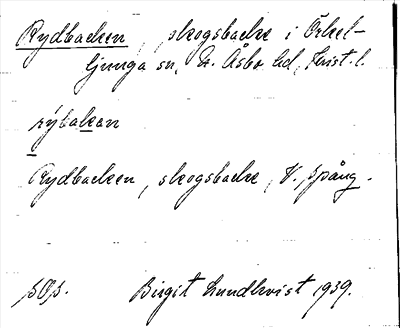 Rydbacken, skogsbacke i Örkel-
ljunga sn, N. Åsbo hd, Krist. l.
rýbakan
Rydbacken, skogsbacke, V. Spång.
Birgit Lundkvist 1939.